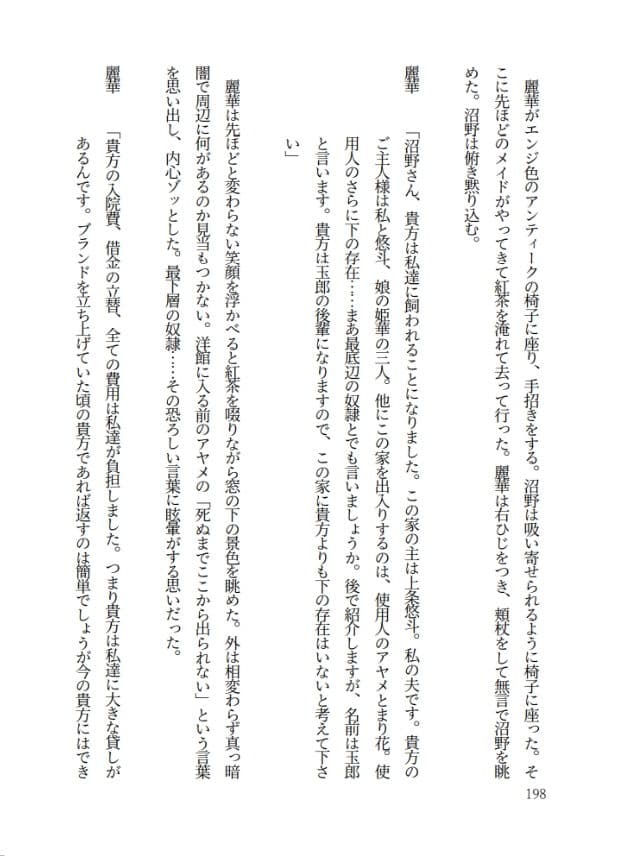 麗華がエンジ色のアンティークの椅子に座り、手招きをする。沼野は吸い寄せられるように椅子に座った。そ
こに先ほどのメイドがやってきて紅茶を淹れて去って行った。麗華は右ひじをつき、頬杖をして無言で沼野を眺
めた。沼野は俯き黙り込む。
麗華 「沼野さん、貴方は私達に飼われることになりました。この家の主は上条悠斗。私の夫です。貴方の
ご主人様は私と悠斗、娘の姫華の三人。他にこの家を出入りするのは、使用人のアヤメとまり花。使
用人のさらに下の存在……まあ最底辺の奴隷とでも言いましょうか。後で紹介しますが、名前は玉郎
と言います。貴方は玉郎の後輩になりますので、この家に貴方よりも下の存在はいないと考えて下さ
い」
麗華は先ほどと変わらない笑顔を浮かべると紅茶を啜りながら窓の下の景色を眺めた。外は相変わらず真っ暗
闇で周辺に何があるのか見当もつかない。洋館に入る前のアヤメの「死ぬまでここから出られない」という言葉
を思い出し、内心ゾッとした。最下層の奴隷……その恐ろしい言葉に眩暈がする思いだった。
麗華 「貴方の入院費、借金の立替、全ての費用は私達が負担しました。つまり貴方は私達に大きな貸しが
あるんです。ブランドを立ち上げていた頃の貴方であれば返すのは簡単でしょうが今の貴方にはでき
198